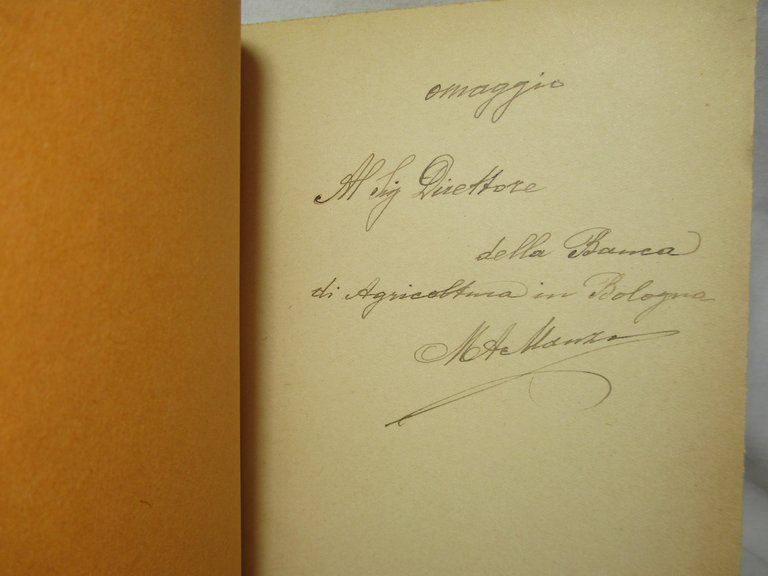 omaggio
Al Sig Direttore
della Banca
di Agricoltura in Bologna
M A Manzo